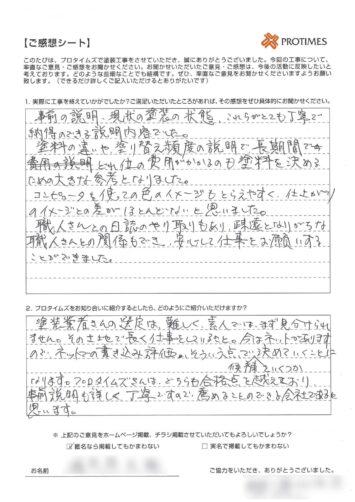 【ご感想シート】
PROTIMES
このたびは、プロタイムズで塗装工事をさせていただき、誠にありがとうございました。今回の工事について、
率直なご意見・ご感想をお聞かせください。お聞かせいただいたご意見・ご感想は、今後の活動に反映したいと
考えております。どのような些細なことでも結構です。ぜひ、率直なご意見をお聞かせくださいますようお願い
致します。（できるだけ詳しくご記入いただけるとありがたいです）
1. 実際に工事を終えていかがでしたか？ご満足いただいたところがあれば、その感想をぜひ具体的にお聞かせください。
事前の説明、現状の塗装の状態、これらがとても丁寧で
納得のできる説明内容でした。
塗料の違いや塗り替え頻度の説明で長期間での
費用の説明どれ位の費用がかかるのも塗料を決める
ための大きな参考となりました。
コンピュータを使っての色のイメージもとらえやすく、仕上がり
のイメージとの差がほとんどないと思いました。
職人さんとの日誌のやり取りもあり、疎遠となりがちな
職人さんとの関係もでき、安心して仕事をお願いする
ことができました。
2. プロタイムズをお知り合いに紹介するとしたら、どのようにご紹介いただけますか？
塗装業者さんの選定は、難しく、素人では、まず見分けられ
ません。その土地で長く仕事をしていましたとか。今はネットがあります
ので、ネットでの書き込み評価や、そういう点で決めていくことに
候補
なります。プロタイムズさんは、どちらも合格点を超えており、
事前説明も詳しく丁寧ですので、薦めることのできる会社であると
思います。
※ 上記のご意見をホームページ掲載、チラシ掲載させていただいてもよろしいでしょうか？
☑匿名なら掲載してもかまわない
□実名で掲載してもかまわない
お名前
ご協力をいただき、ありがとうございました。